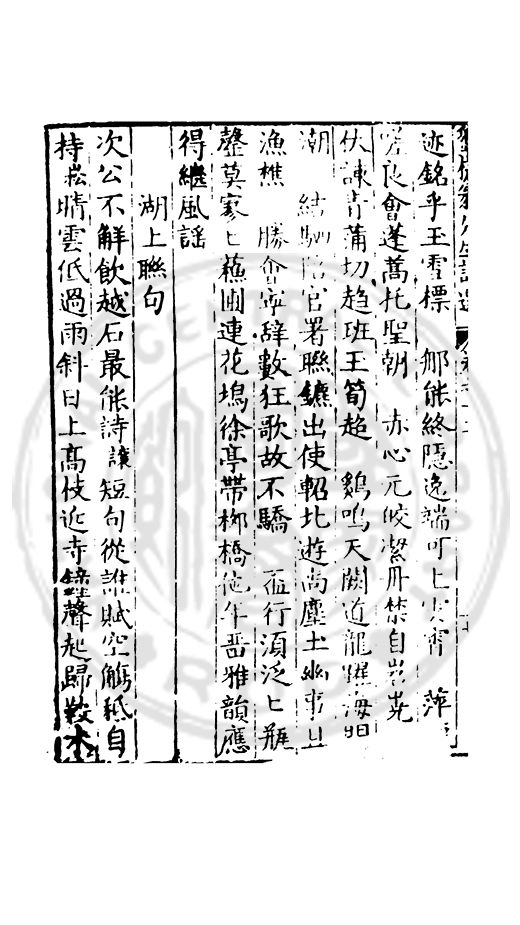 迹銘乎玉霄標 那能終隱逸端可上 萍
良會蓬蒿托聖朝 赤心元皎潔丹禁自岧嶤
伏諫青蒲切趨班玉筍超 鷄鳴天闕迥龍躍海
潮 結駟陪官署聯鑣出使軺北遊尚塵土幽事且
漁樵 勝會寧辭數狂歌故不驕 行須泛匕
罄莫寥匕蘇圃連花塢徐亭帶柳橋他年晋雅韻應
得繼風謡
湖上聯句
次公不解飲越石最能詩讓短句從誰賦空觴秪自
持崧晴雲低過雨斜日上高枝近寺鐘聲起歸